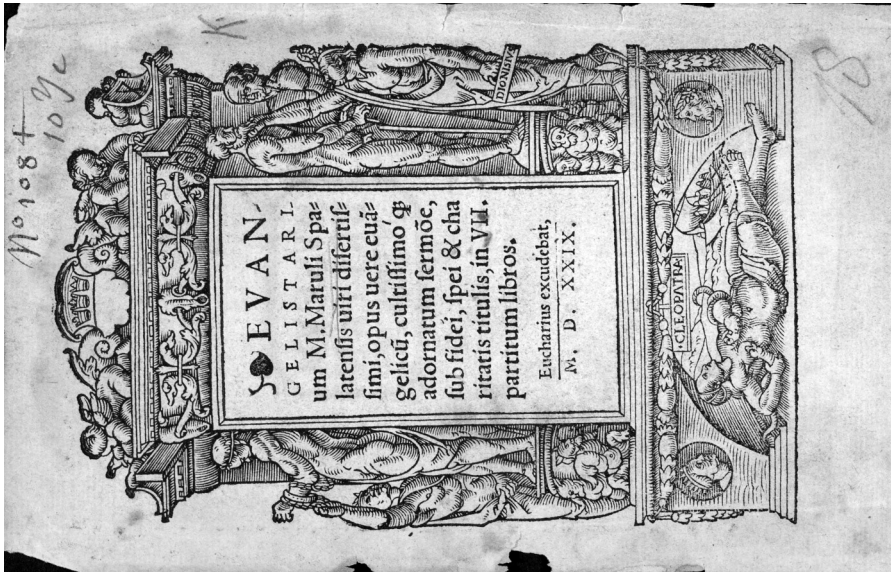 No 1084
K
DIONISIVS
EVAN-
GELISTARI
um M. Maruli Spa-
latensis uiri disertis-
simi, opus uere euā-
gelicū, cultissimo qꝫ
adornatum sermōe,
sub fidei, spei & cha
ritatis titulis, in VII.
partitum libros.
Eucharius excudebat,
M. D. XXIX.
CLEOPATRA